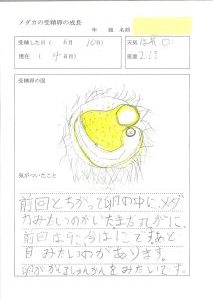 メダカの受精卵の成長
年 組 名前
受精した日( 6月 10日) 天気 晴れ
現在 ( 4日目) 室温
受精卵の図
気がついたこと
前回とちがって卵の中に、メダ
カみたいのがいたまた丸がに、
前回は9こ、今は1こですあと
目みたいのがあります。
卵がかえるしゅんかんをみたいです。